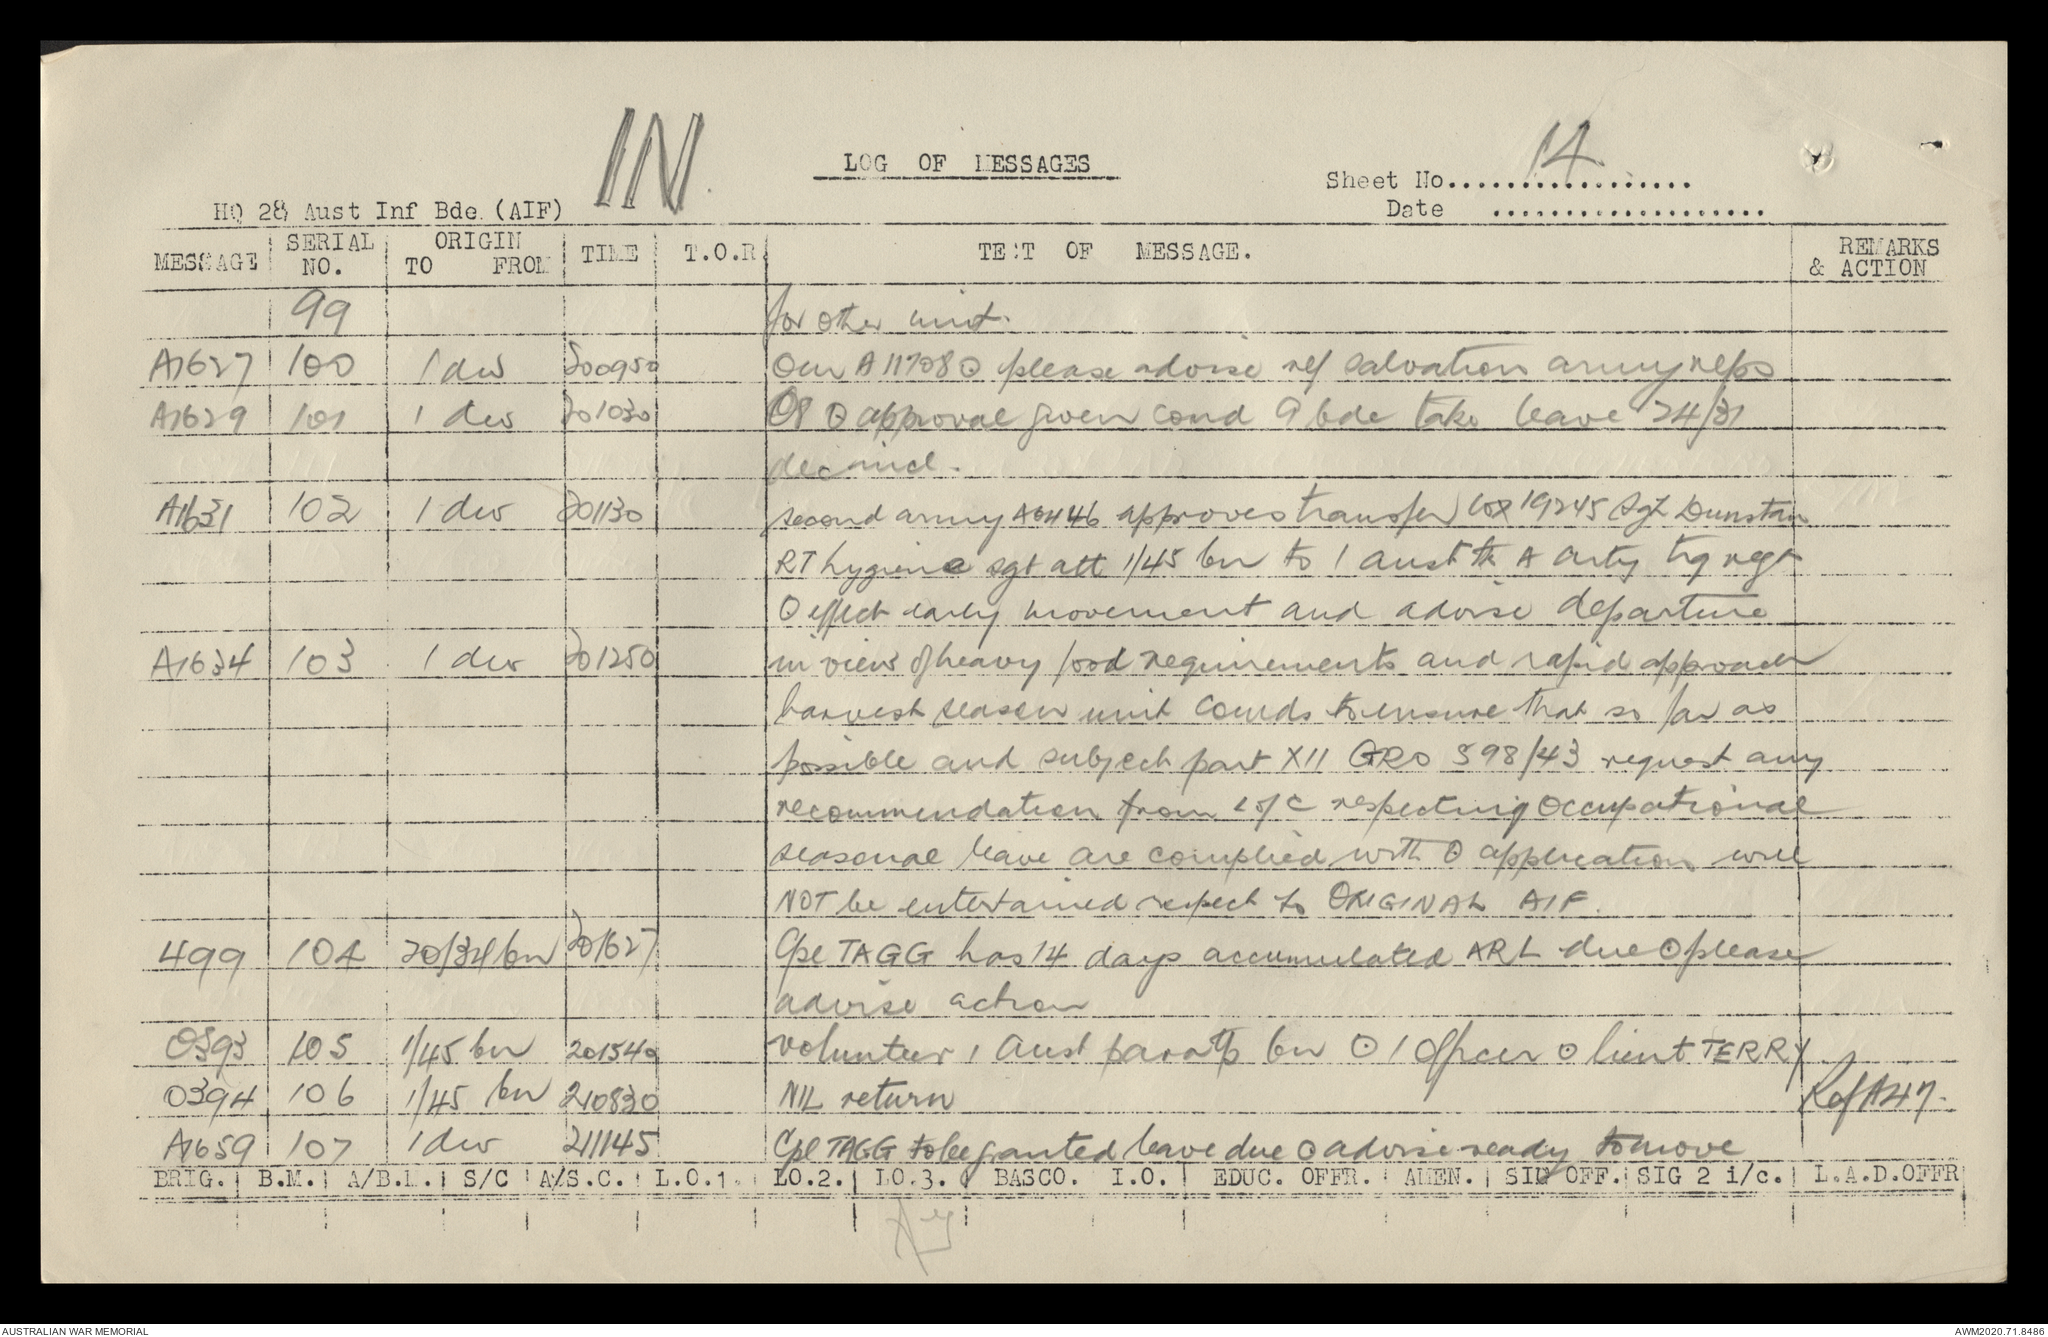 IN
LOG OF MESSAGES
14
Sheet No..................
Date ....................
HQ 28 Aust Inf Bde (AIF)
MESSAGE SERIAL NO. ORIGIN TO FROM TIME T.O.R. TEXT OF MESSAGE. REMARKS & ACTION
99 for other unit.
A1627 100 1 div 200950 Our A11708 ⊙ please advise ref salvation army reps
A1629 101 1 div 201030 ⊙ approval given comd 9 bde take leave 24/31
dec incl.
A1631 102 1 div 201130 second army approves transfer 19245 Sgt Dunstan
RT hygiene sgt att 1/45 bn to 1 aust tk A arty trg regt
⊙ effect early movement and advise departure
A1634 103 1 div 201250 in view of heavy food requirements and rapid approach
harvest season unit comds to ensure that so far as
possible and subject part XII GRO 598/43 request any
recommendation from L of C respecting occupational
seasonal leave are complied with ⊙ application will
NOT be entertained respect to ORIGINAL AIF.
499 104 20/34 bn 201627 Cpl TAGG has 14 days accumulated ARL due ⊙ please
advise action
O393 105 1/45 bn 201540 volunteer 1 Aust paratp bn ⊙ 1 officer ⊙ lieut TERRY
O394 106 1/45 bn 210830 NIL return Ref A47.
A1659 107 1 div 211145 Cpl TAGG to be granted leave due ⊙ advise ready to move
BRIG. B.M. A/B.M. S/C A/S.C. L.O.1. LO.2. LO.3. BASCO. I.O. EDUC. OFFR. AMEN. SIG OFF. SIG 2 i/c. L.A.D.OFFR
AUSTRALIAN WAR MEMORIAL
AWM2020.71.8486